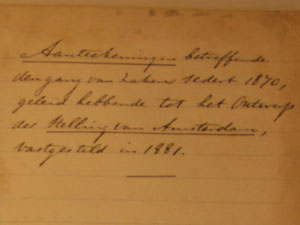 Aanteekeningen betreffende
den gang van zaken sedert 1870,
geleid hebbende tot het Ontwerp
der Stelling van Amsterdam,
vastgesteld in 1881.